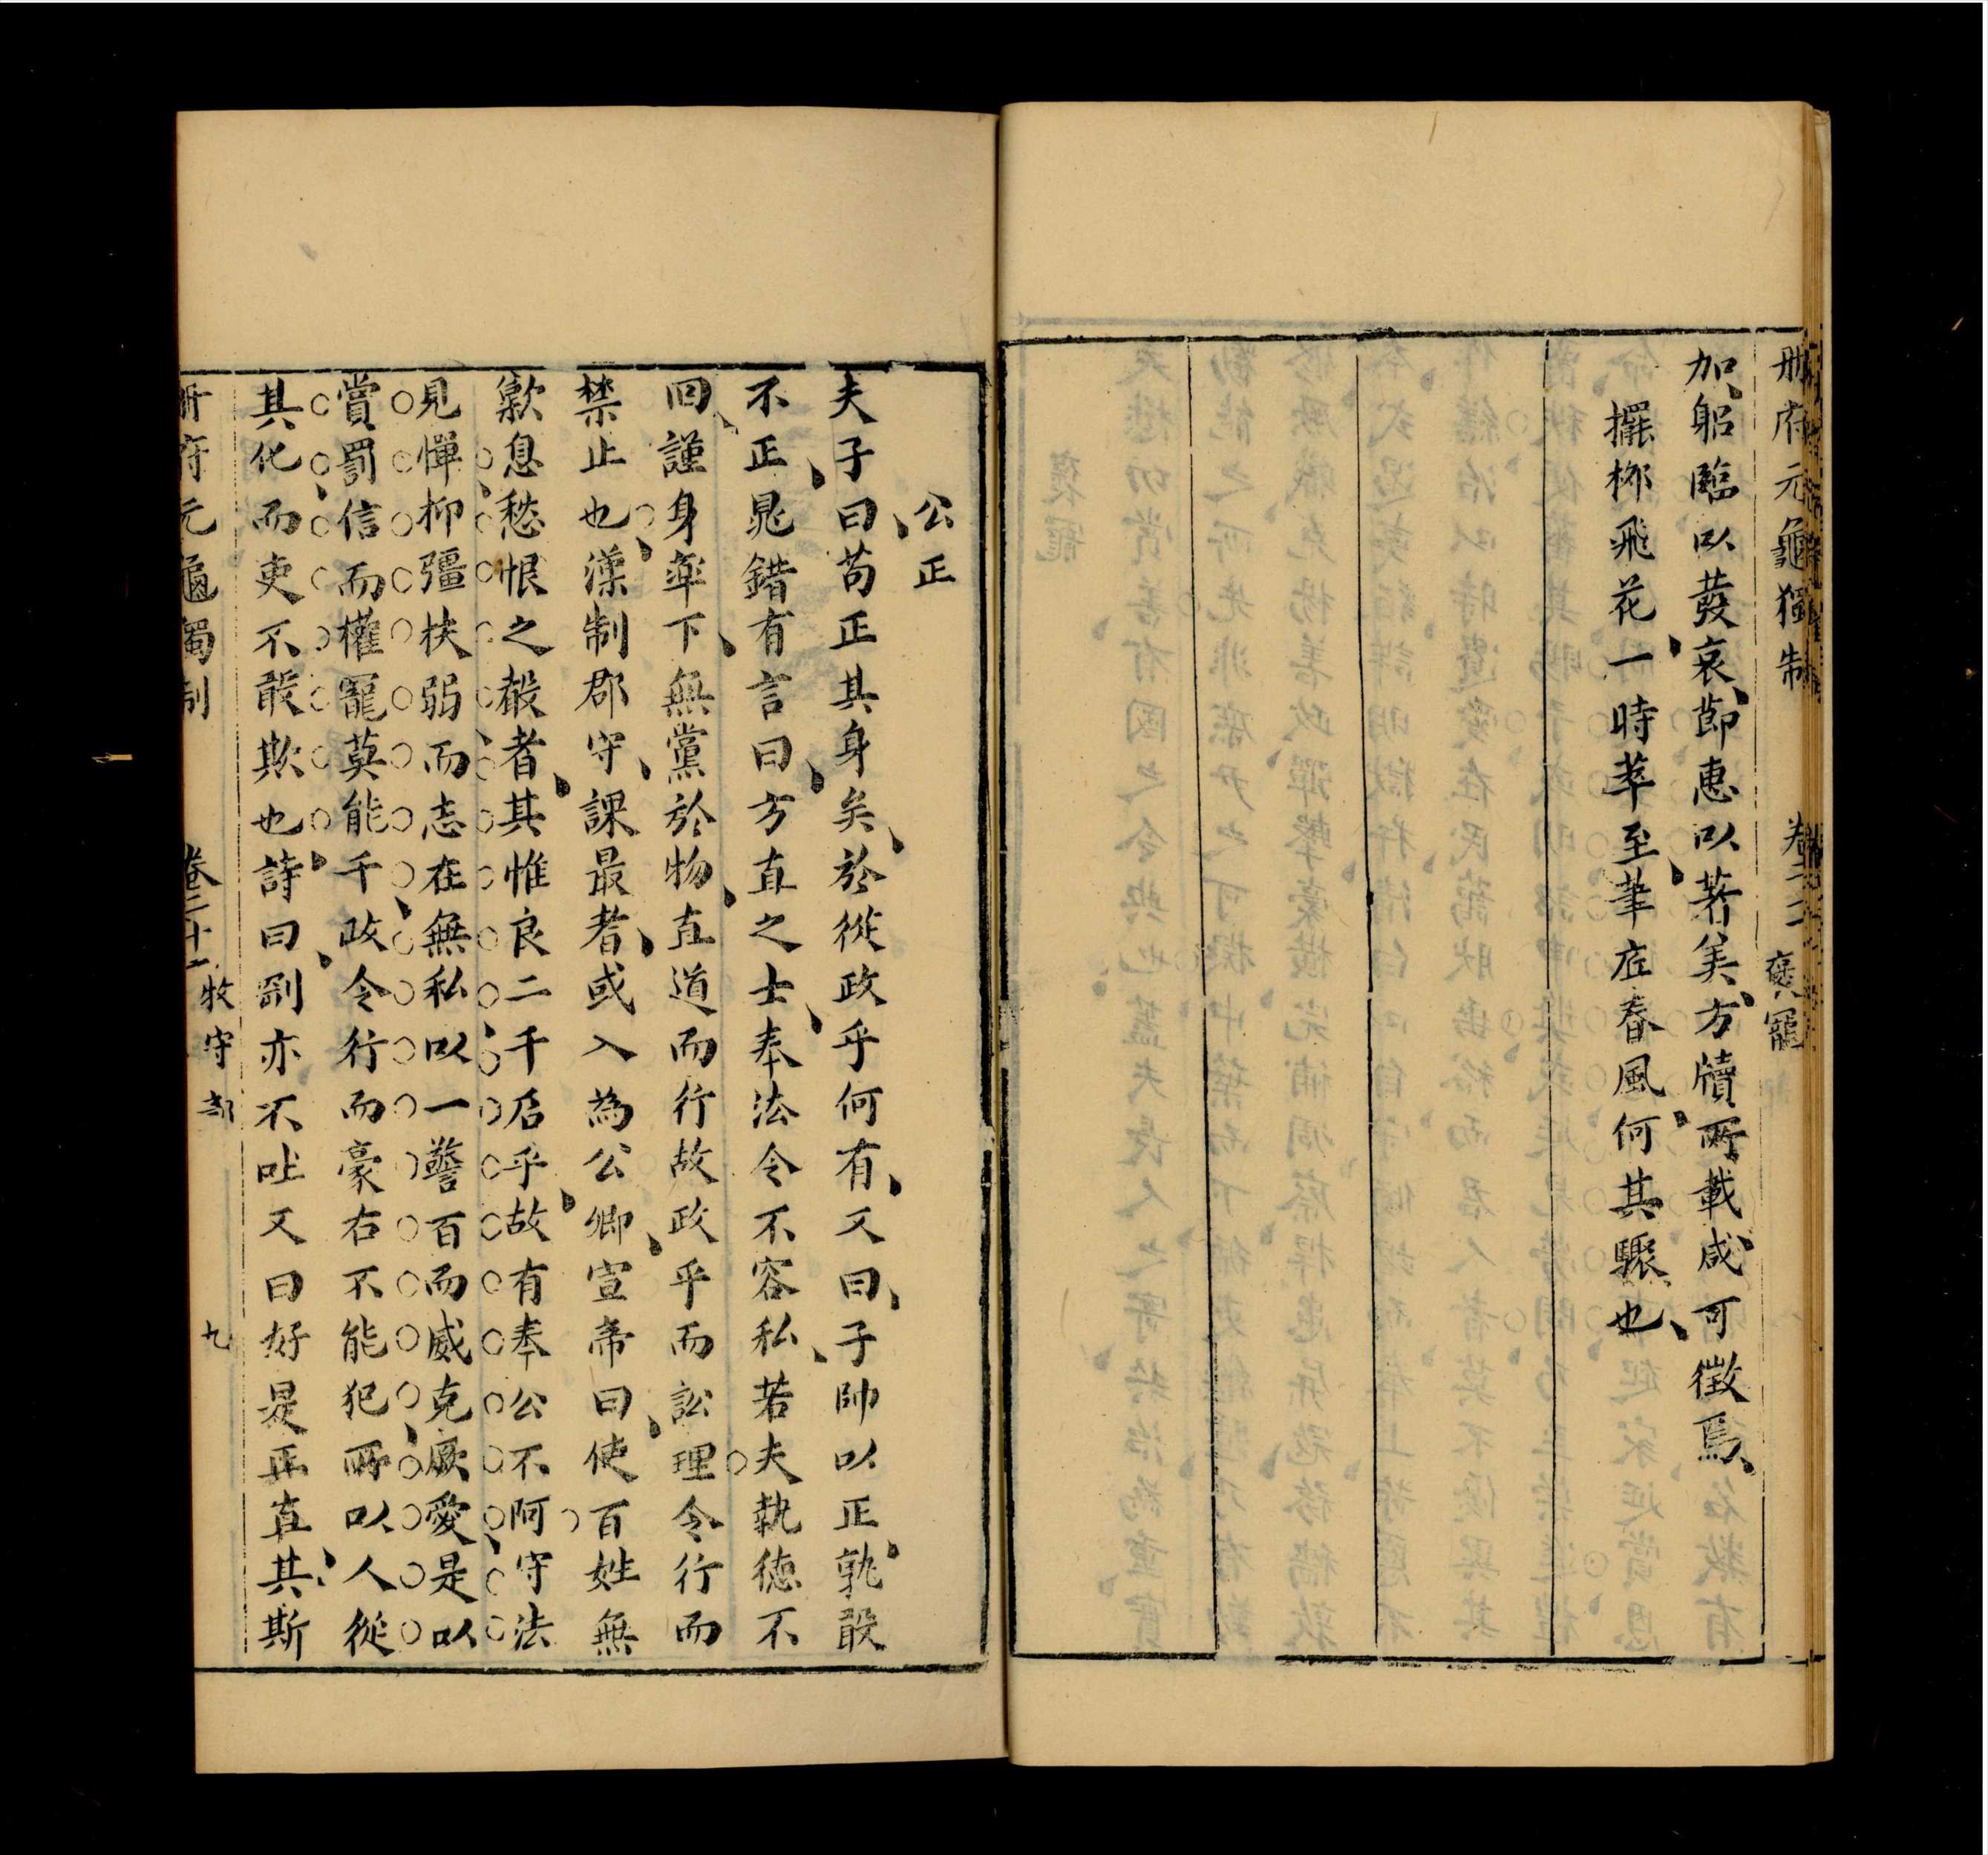 冊府元龜獨制 卷二十二 褒寵
加躬臨以發哀節惠以著美方牘所載咸可徵焉
擺柳飛花一時萃至筆庄春風何其驟也
公正
夫子曰苟正其身矣於從政乎何有又曰子帥以正孰敢
不正晁錯有言曰方直之士奉法令不容私若夫執德不
回謹身率下無黨於物直道而行故政乎而訟理令行而
禁止也漢制郡守課最者或入為公卿宣帝曰使百姓無
歎息愁恨之聲者其惟良二千石乎故有奉公不阿守法
見憚抑彊扶弱而志在無私以一警百而威克厥愛是以
賞罰信而權寵莫能干政令行而豪右不能犯所以人從
其化而吏不敢欺也詩曰剛亦不吐又曰好是正直其斯
冊府元龜獨制 卷二十一 牧守部 九